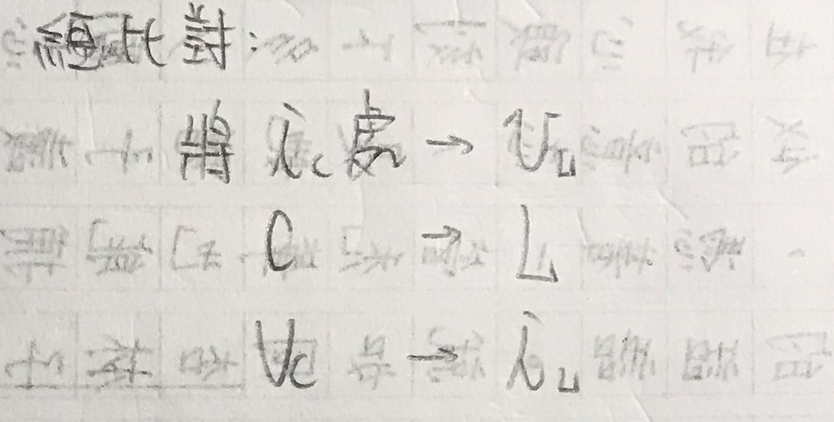 經比對:
將 i_c 處 → V_L
C → L
V_C → i_L